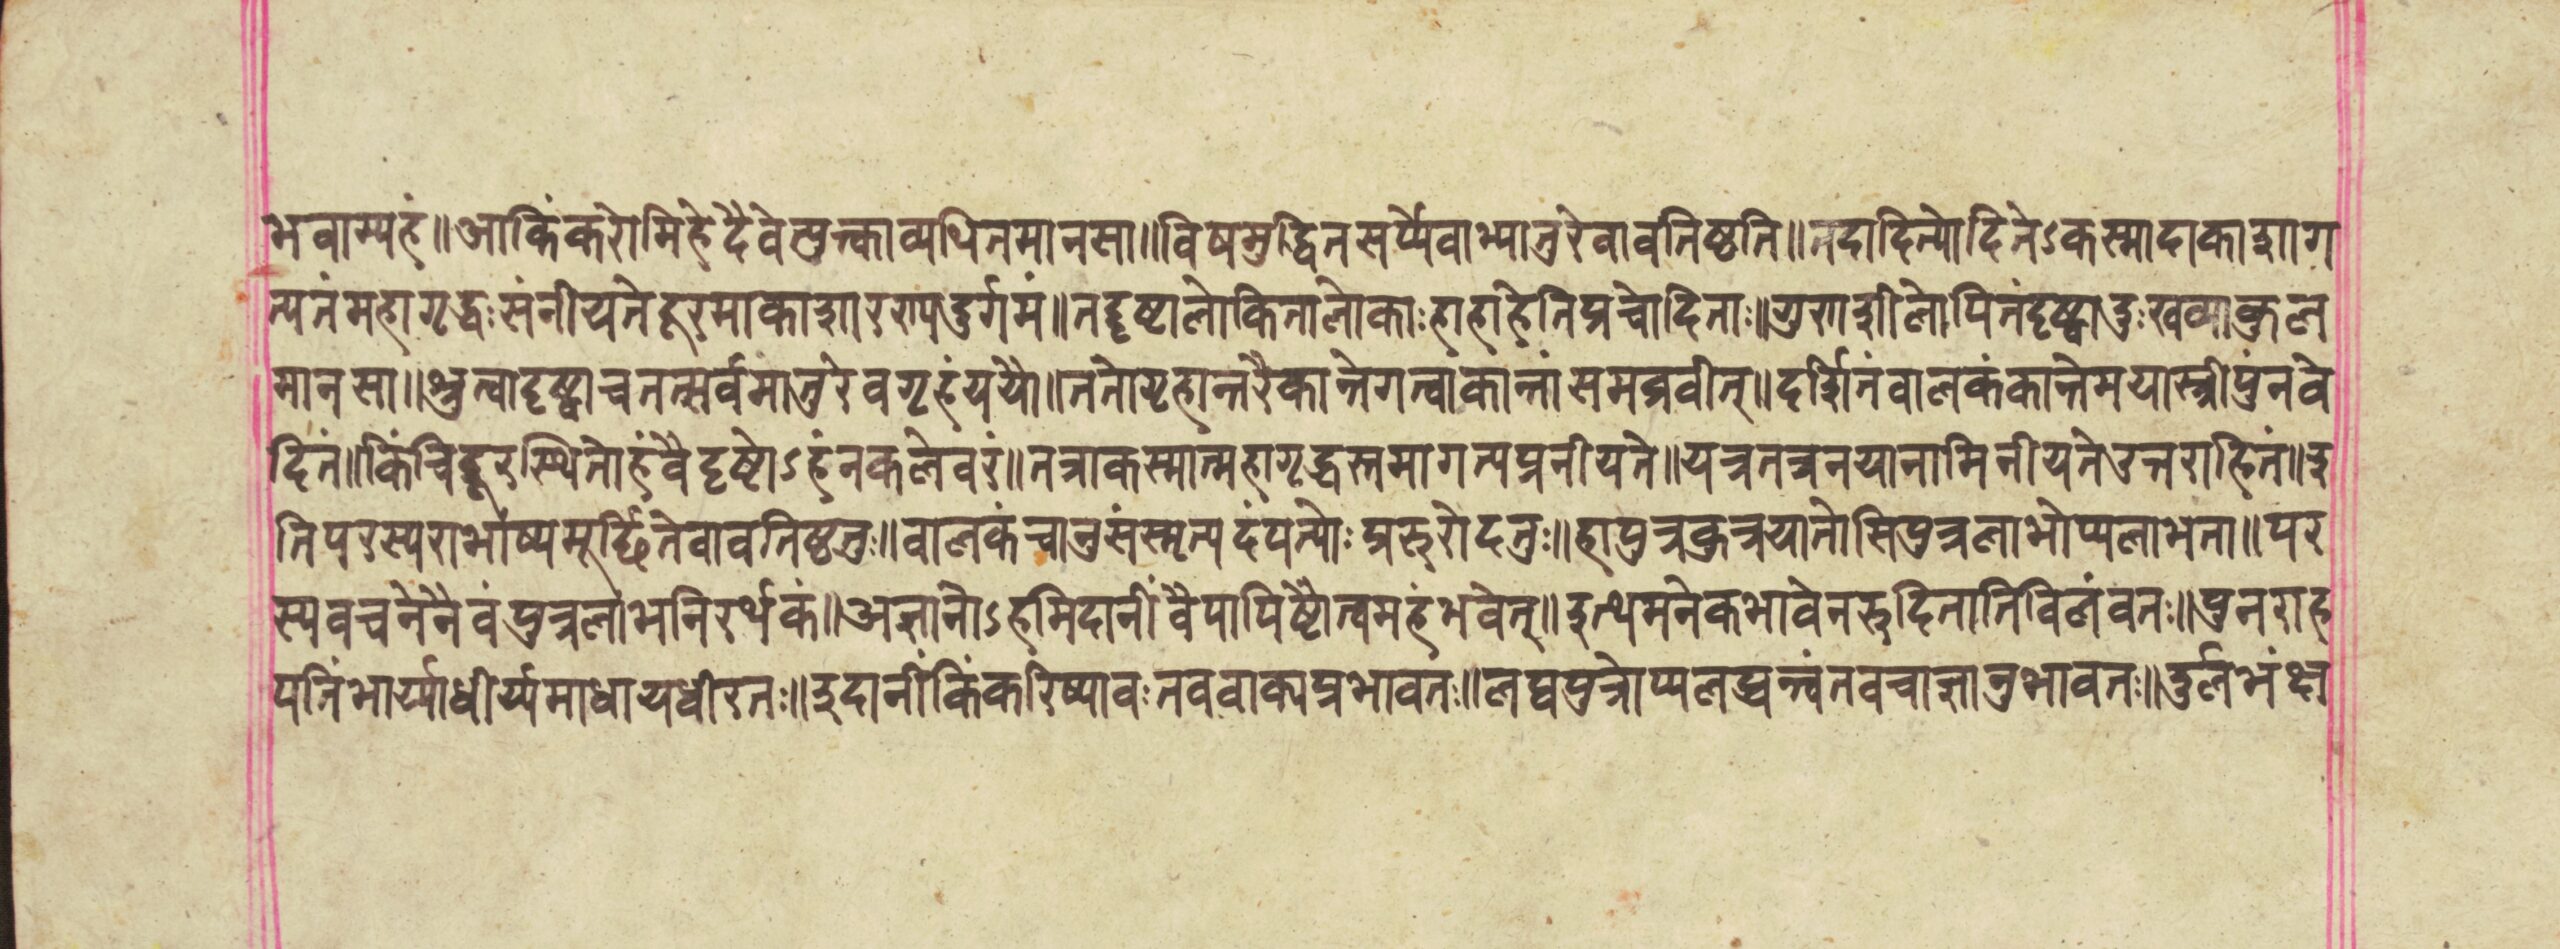 भवाम्यहं॥आकिंकरोमिहेदैवेत्युक्त्काव्यथितमानसा॥विषमुद्वितसर्प्पेवाभ्यातुरेवावतिष्ठति॥तदादित्योदितेऽकस्मादाकाशाग
त्यतंमहागृद्धःसंनीयतेदूरमाकाशारण्यदुर्गमं॥तद्दृष्टालोकितालोकाःहाहाहेतिप्रचोदिताः॥गुणशीलोपितंदृष्ट्वादुःखव्याकुल
मानसा॥श्रुत्वादृष्ट्वाचतत्सर्वमातुरेवगृहंययौ॥ततोगृहान्तरैकान्तेगत्वाकान्तांसमब्रवीत्॥दर्शितंवालकंकान्तेमयास्त्रीपुंनवे
दितं॥किंचिद्दूरस्थितोहंवैदृष्टोऽहंनकलेवरं॥तत्राकस्मान्महागृद्धस्तमागत्यप्रनीयते॥यत्रतत्रनयानामिनीयतेउत्तराहितं॥इ
तिपरस्पराभाष्यमूर्छितेवावतिष्ठतुः॥वालकंचानुसंस्मृत्यदंपत्योःप्ररुरोदतुः॥हापुत्रकुत्रयातोसिपुत्रलाभोप्यलाभता॥पर
स्यवचनेनैवंपुत्रलाभनिरर्थकं॥अज्ञानोऽहमिदानींवैपापिष्टौत्वमहंभवेत्॥इत्थमनेकभावेनरुदितातिविलंवतः॥पुनराह
पतिंभार्य्याधीर्य्यमाधायधीरतः॥इदानींकिंकरिष्यावःतववाक्यप्रभावतः॥लब्धपुत्रोप्यलब्धन्त्वंतवचाज्ञानुभावतः॥दुर्लभंक्षा